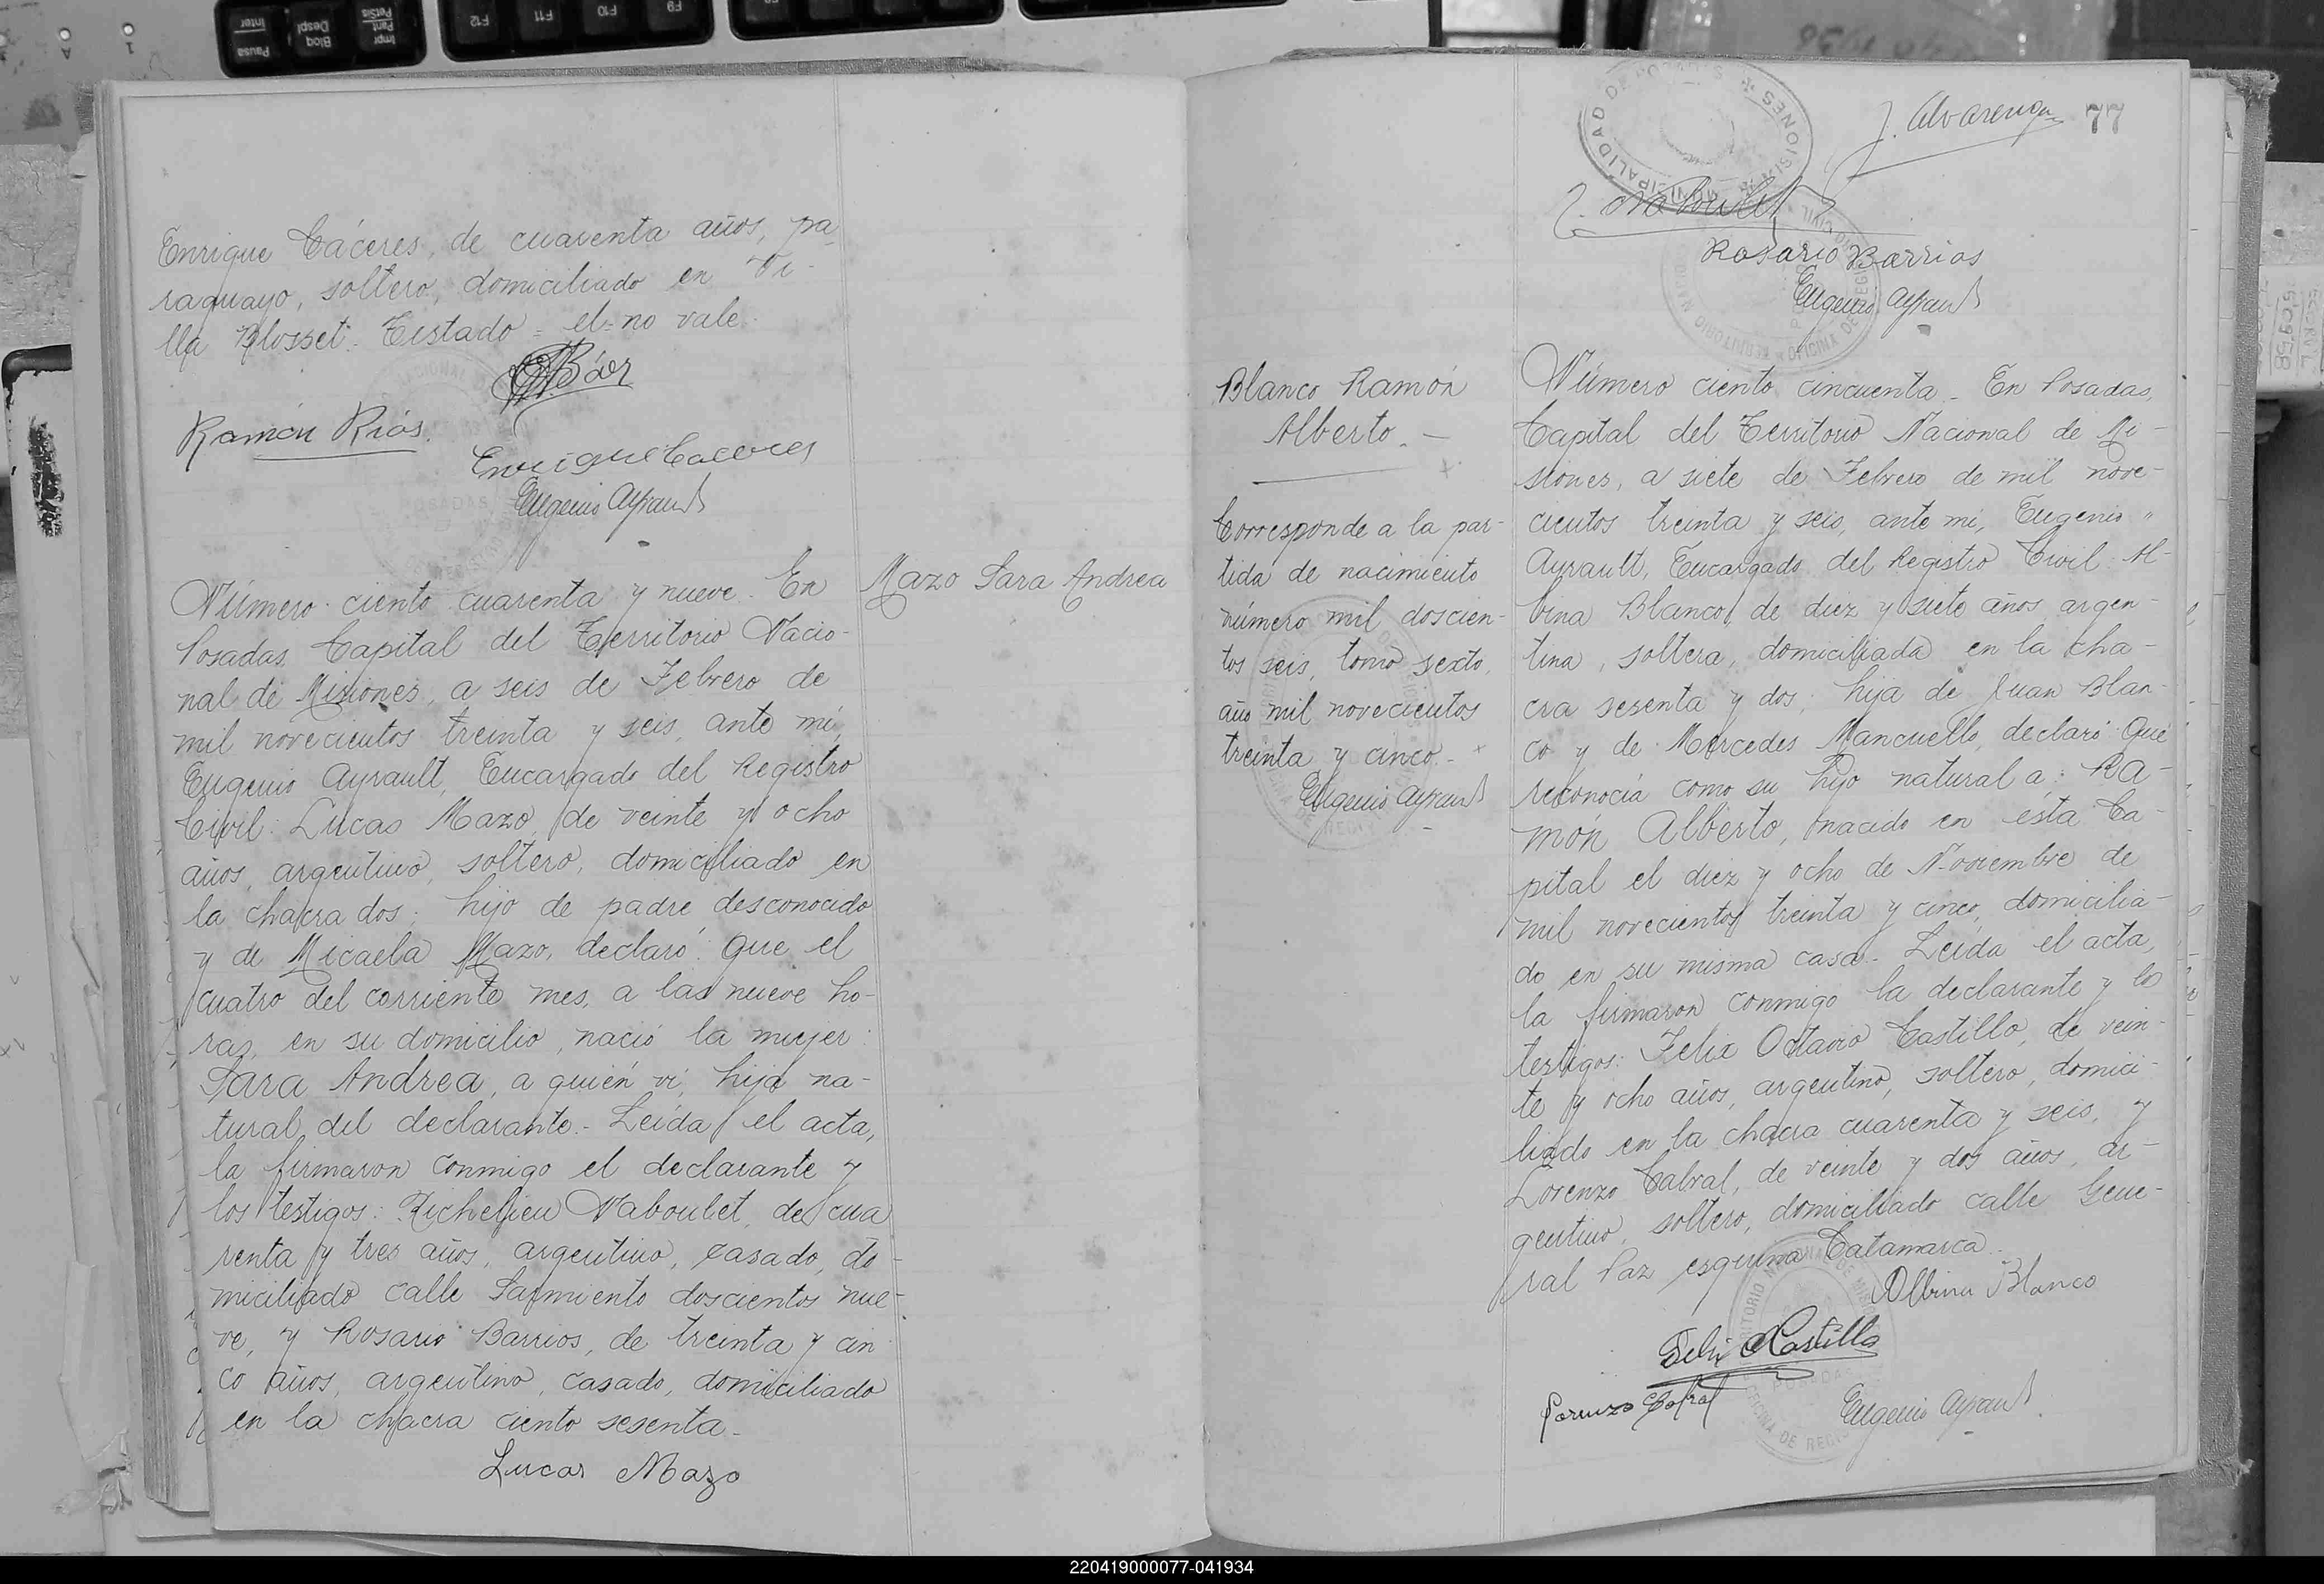 Enrique Cáceres, de cuarenta años, pa
raguayo, soltero, domiciliado en Vi-
lla Blosset. Testado = el = no vale.
Ramón Ríos.
Enrique Caceres
Eugenio Ayrault
Número ciento cuarenta y nueve. En
Posadas, Capital del Territorio Nacio-
nal de Misiones, a seis de Febrero de
mil novecientos treinta y seis, ante mí,
Eugenio Ayrault, Encargado del Registro
Civil: Lucas Mazo, de veinte y ocho
años, argentino, soltero, domiciliado en
la chacra dos; hijo de padre desconocido
y de Micaela Mazo, declaró: Que el
cuatro del corriente mes, a las nueve ho-
ras, en su domicilio, nació la mujer:
Sara Andrea, a quién vi, hija na-
tural del declarante.- Leída el acta,
la firmaron conmigo el declarante y
los testigos: Richelieu Naboulet, de cua
renta y tres años, argentino, casado, do-
miciliado calle Sarmiento doscientos nue-
ve, y Rosario Barrios, de treinta y cin
co años, argentino, casado, domiciliado
en la chacra ciento sesenta.-
Lucas Mazo
Mazo Sara Andrea
J. Alvarenga
77
R. Naboulet
Rosario Barrios
Eugenio Ayrault
Blanco Ramón
Alberto.-
Corresponde a la par-
tida de nacimiento
número mil doscien-
tos seis, tomo sexto,
año mil novecientos
treinta y cinco.-
Eugenio Ayrault
Número ciento cincuenta.- En Posadas,
Capital del Territorio Nacional de Mi-
siones, a siete de Febrero de mil nove-
cientos treinta y seis, ante mí, Eugenio "
Ayrault, Encargado del Registro Civil: Al-
bina Blanco, de diez y siete años, argen-
tina, soltera, domiciliada en la cha-
cra sesenta y dos, hija de Juan Blan-
co y de Mercedes Mancuello, declaró: Que
reconocía como su hijo natural a: Ra-
món Alberto, nacido en esta Ca-
pital el diez y ocho de Noviembre de
mil novecientos treinta y cinco, domicilia-
do en su misma casa.- Leída el acta,
la firmaron conmigo la declarante y los
testigos: Felix Octavio Castillo, de vein-
te y ocho años, argentino, soltero, domici-
liado en la chacra cuarenta y seis, y
Lorenzo Cabral, de veinte y dos años, ar-
gentino, soltero, domiciliado calle Gene-
ral Paz esquina Catamarca.
Albina Blanco
Felix O Castillo
Lorenzo Cabral
Eugenio Ayrault
220419000077-041934